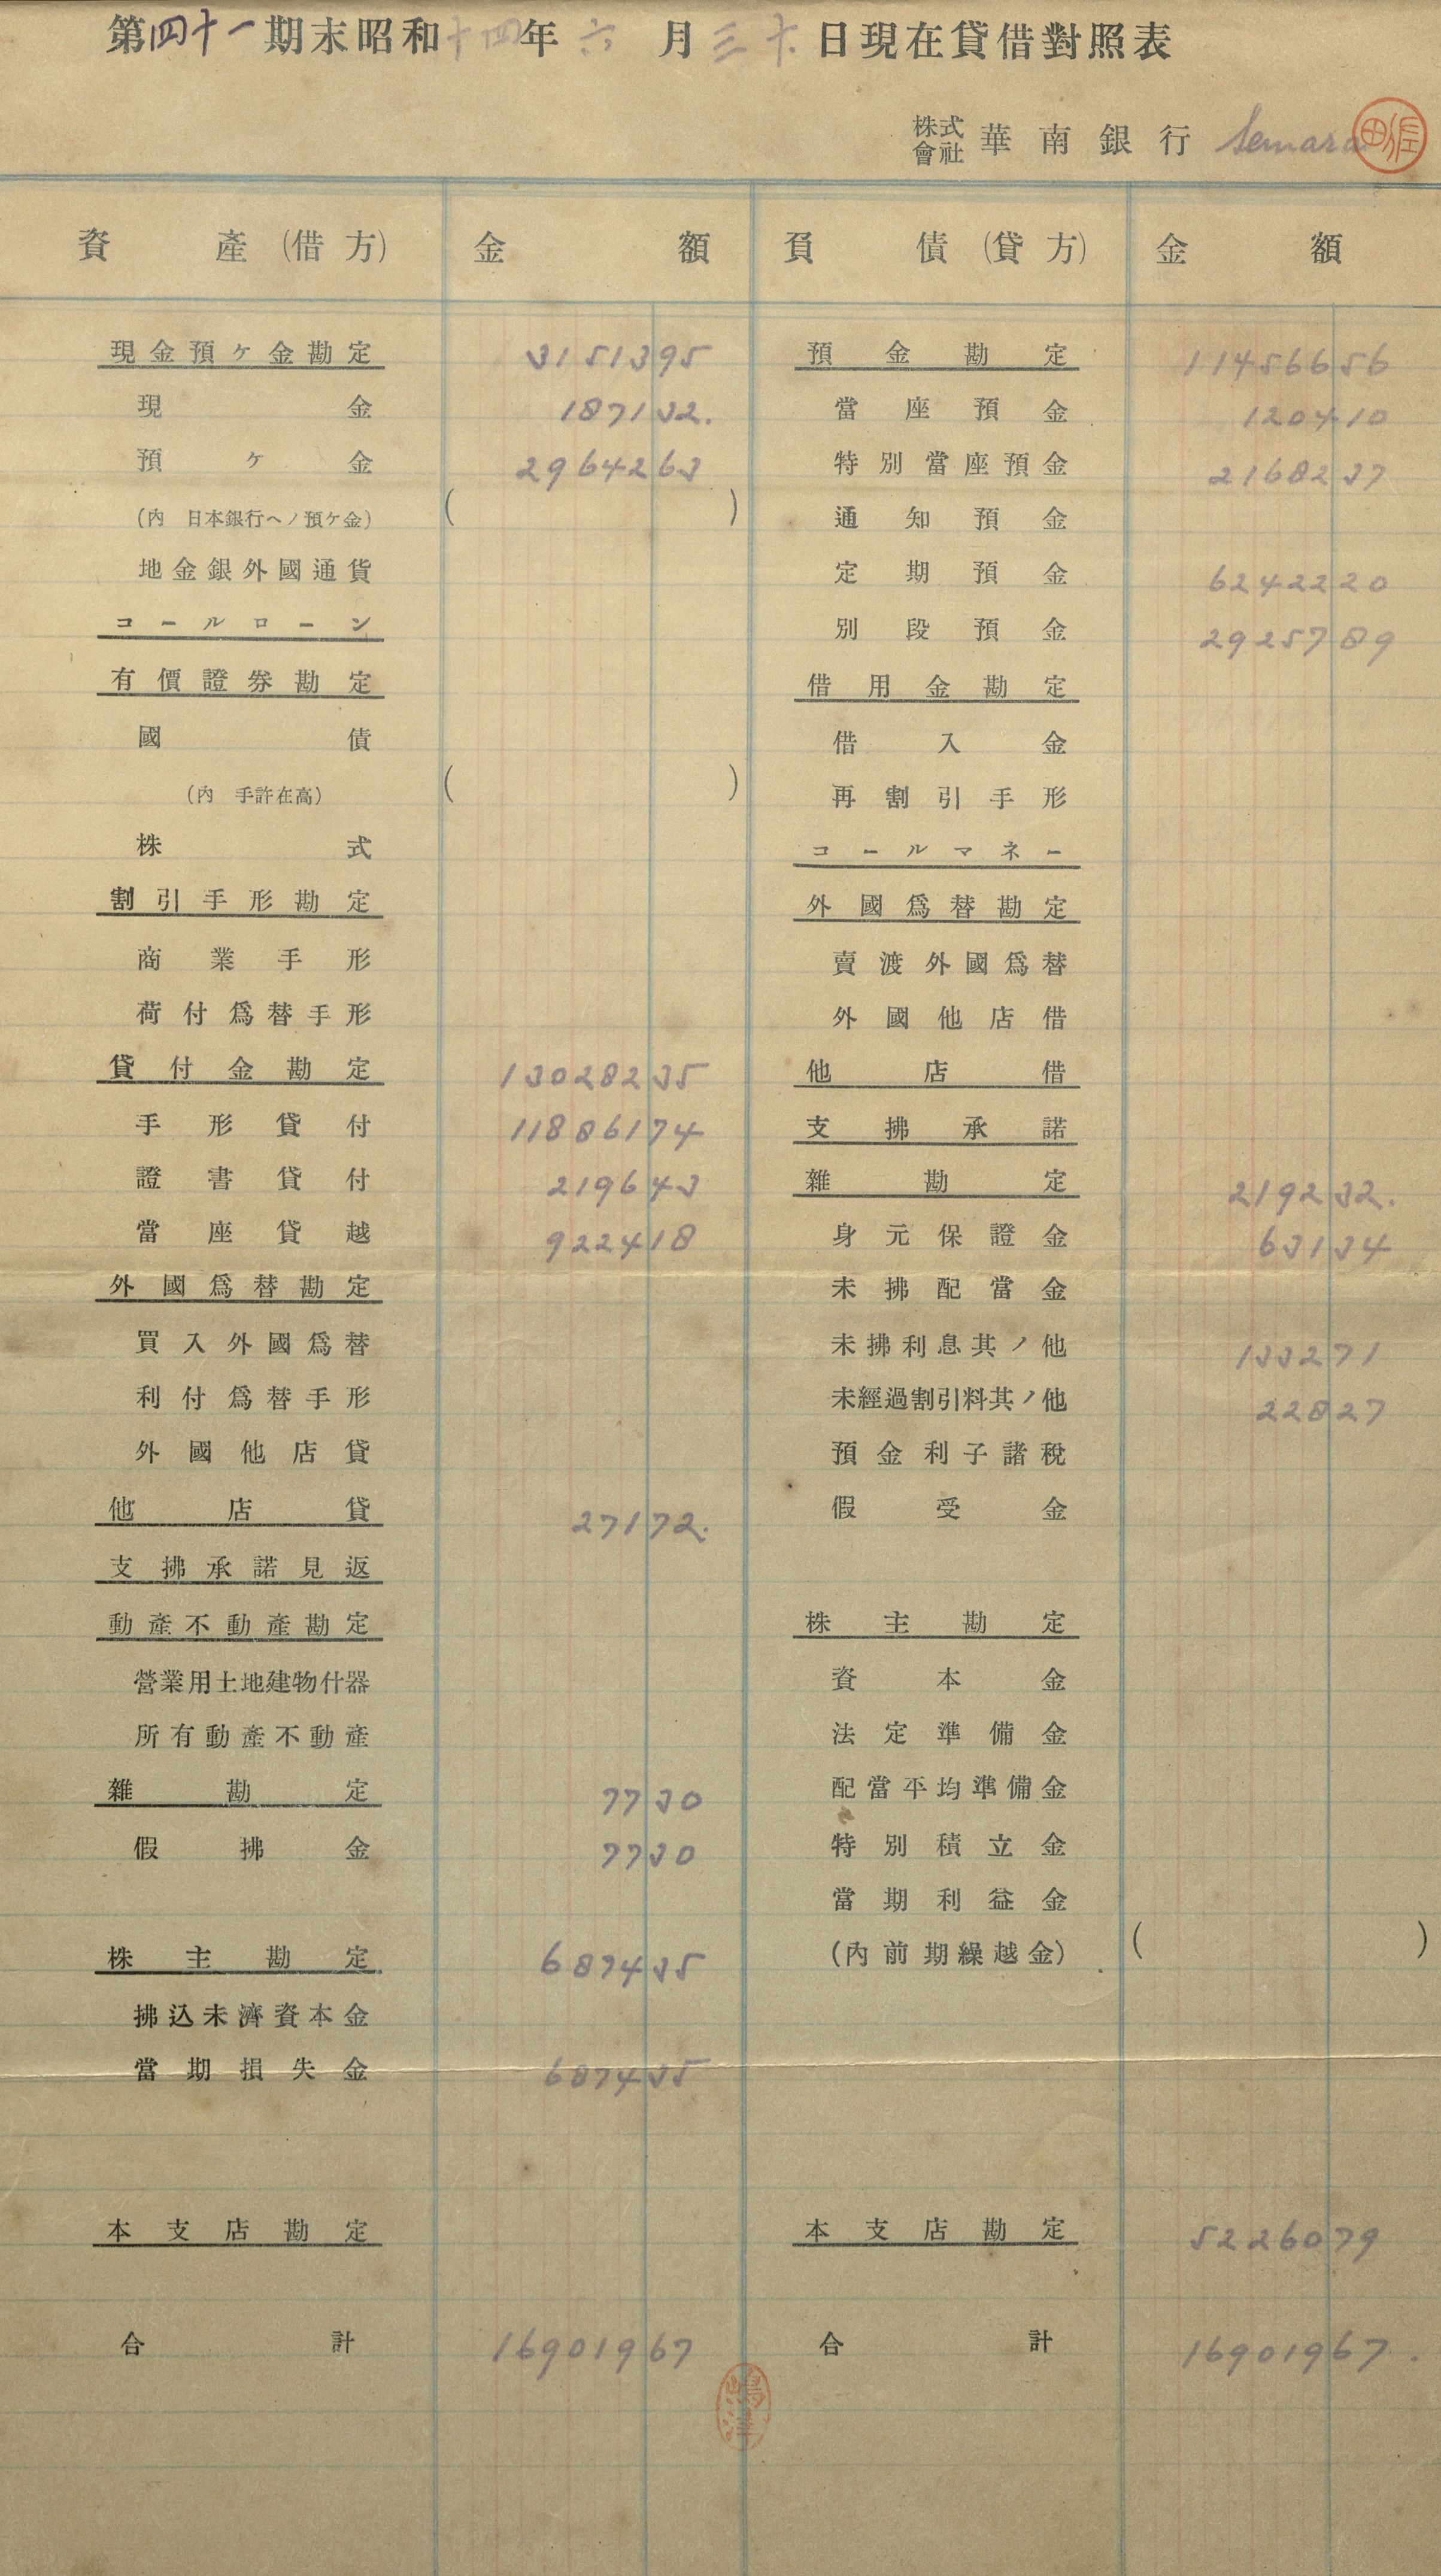 第四十一期末昭和十四年六月三十日現在貸借對照表
株式會社 華南銀行 Semara
資產(借方) 金額 負債(貸方) 金額
現金預ヶ金勘定 3151395 預金勘定 11456656
現金 187132. 當座預金 120410
預ヶ金 2964263 特別當座預金 2168237
(內 日本銀行ヘノ預ヶ金) ( ) 通知預金
地金銀外國通貨 定期預金 6242220
コールローン 別段預金 2925789
有價證券勘定 借用金勘定
國債 借入金
(內 手許在高) ( ) 再割引手形
株式 コールマネー
割引手形勘定 外國爲替勘定
商業手形 賣渡外國爲替
荷付爲替手形 外國他店借
貸付金勘定 13028235 他店借
手形貸付 11886174 支拂承諾
證書貸付 219643 雜勘定 219232.
當座貸越 922418 身元保證金 63134
外國爲替勘定 未拂配當金
買入外國爲替 未拂利息其ノ他 133271
利付爲替手形 未經過割引料其ノ他 22827
外國他店貸 預金利子諸稅
他店貸 27172. 假受金
支拂承諾見返
動產不動產勘定 株主勘定
營業用土地建物什器 資本金
所有動產不動產 法定準備金
雜勘定 7730 配當平均準備金
假拂金 7730 特別積立金
當期利益金
株主勘定 687435 (內前期繰越金) ( )
拂込未濟資本金
當期損失金 687435
本支店勘定 本支店勘定 5226079
合計 16901967 合計 16901967.